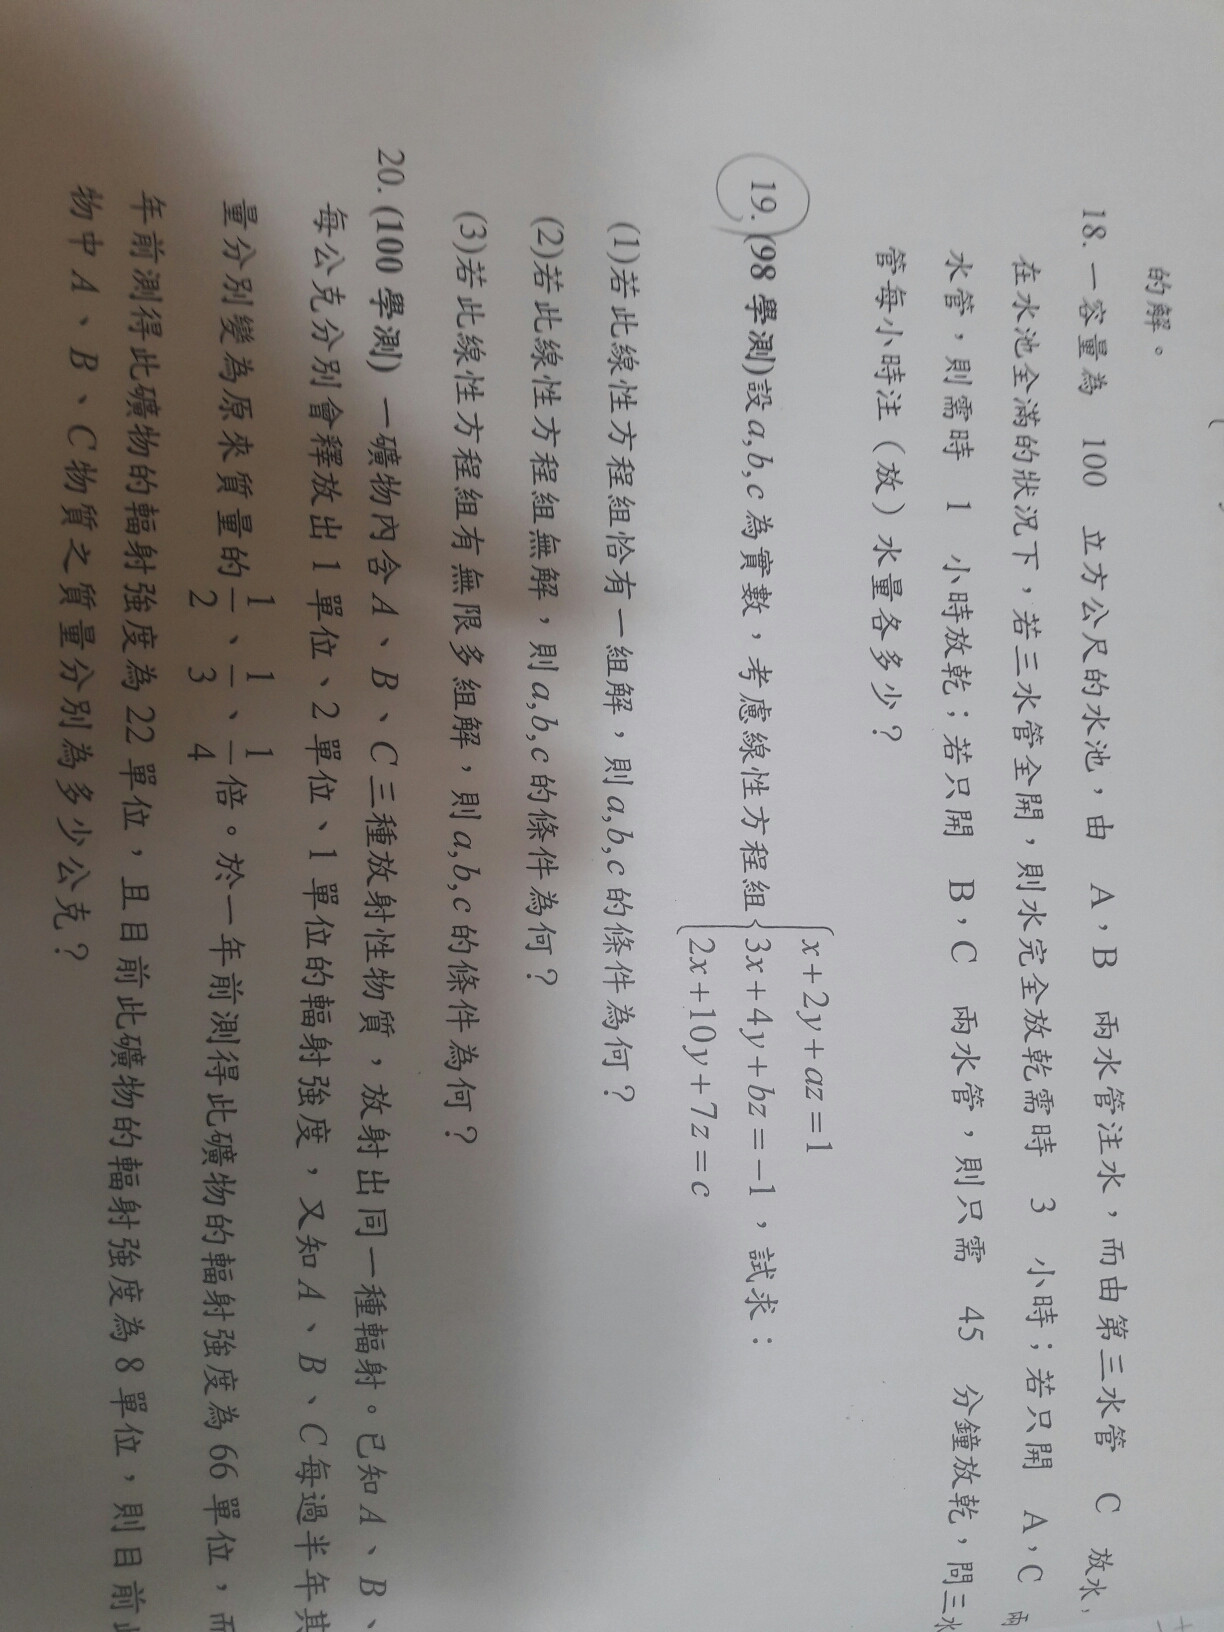 的解。
18. 一容量為 100 立方公尺的水池，由 A，B 兩水管注水，而由第三水管 C 放水，
在水池全滿的狀況下，若三水管全開，則水完全放乾需時 3 小時；若只開 A，C 兩
水管，則需時 1 小時放乾；若只開 B，C 兩水管，則只需 45 分鐘放乾，問三水
管每小時注（放）水量各多少？
19. (98 學測)設 a,b,c 為實數，考慮線性方程組 { x+2y+az=1
3x+4y+bz=-1，試求：
2x+10y+7z=c
(1)若此線性方程組恰有一組解，則 a,b,c 的條件為何？
(2)若此線性方程組無解，則 a,b,c 的條件為何？
(3)若此線性方程組有無限多組解，則 a,b,c 的條件為何？
20. (100 學測) 一礦物內含 A、B、C 三種放射性物質，放射出同一種輻射。已知 A、B、
每公克分別會釋放出 1 單位、2 單位、1 單位的輻射強度，又知 A、B、C 每過半年其
量分別變為原來質量的 1/2、1/3、1/4 倍。於一年前測得此礦物的輻射強度為 66 單位，而
年前測得此礦物的輻射強度為 22 單位，且目前此礦物的輻射強度為 8 單位，則目前此
物中 A、B、C 物質之質量分別為多少公克？